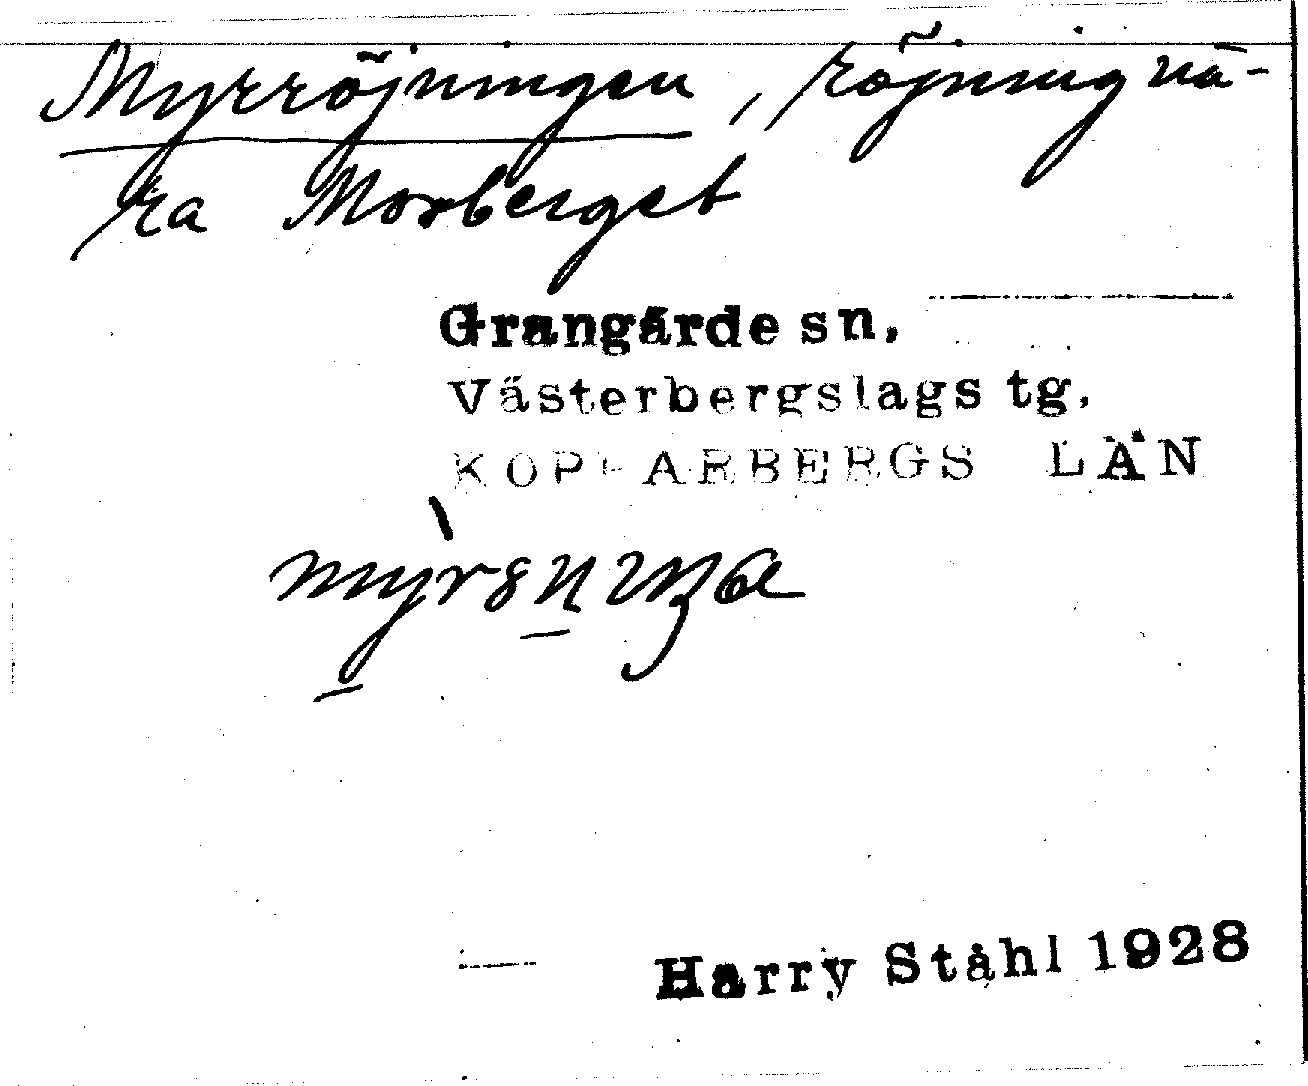 Myrröjningen, röjning nä-
ra Morberget
Grangärde sn.
Västerbergslags tg.
KOPPARBERGS LÄN
Harry Ståhl 1928